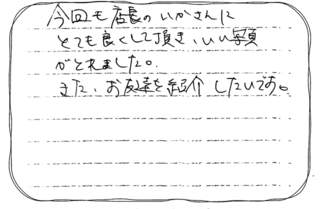 今回も店長のいかさんに
とても良くして頂き、いい写真
がとれました。
また、お友達を紹介したいです。